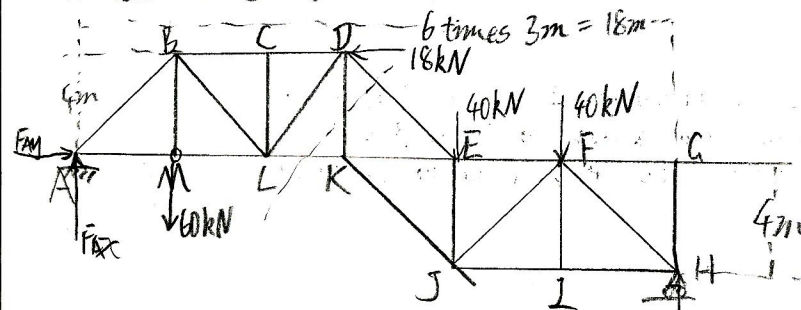 6 times 3m = 18m
B C D
18kN
4m
40kN 40kN
FAM
E F G
A M L K
60kN
4m
J I H